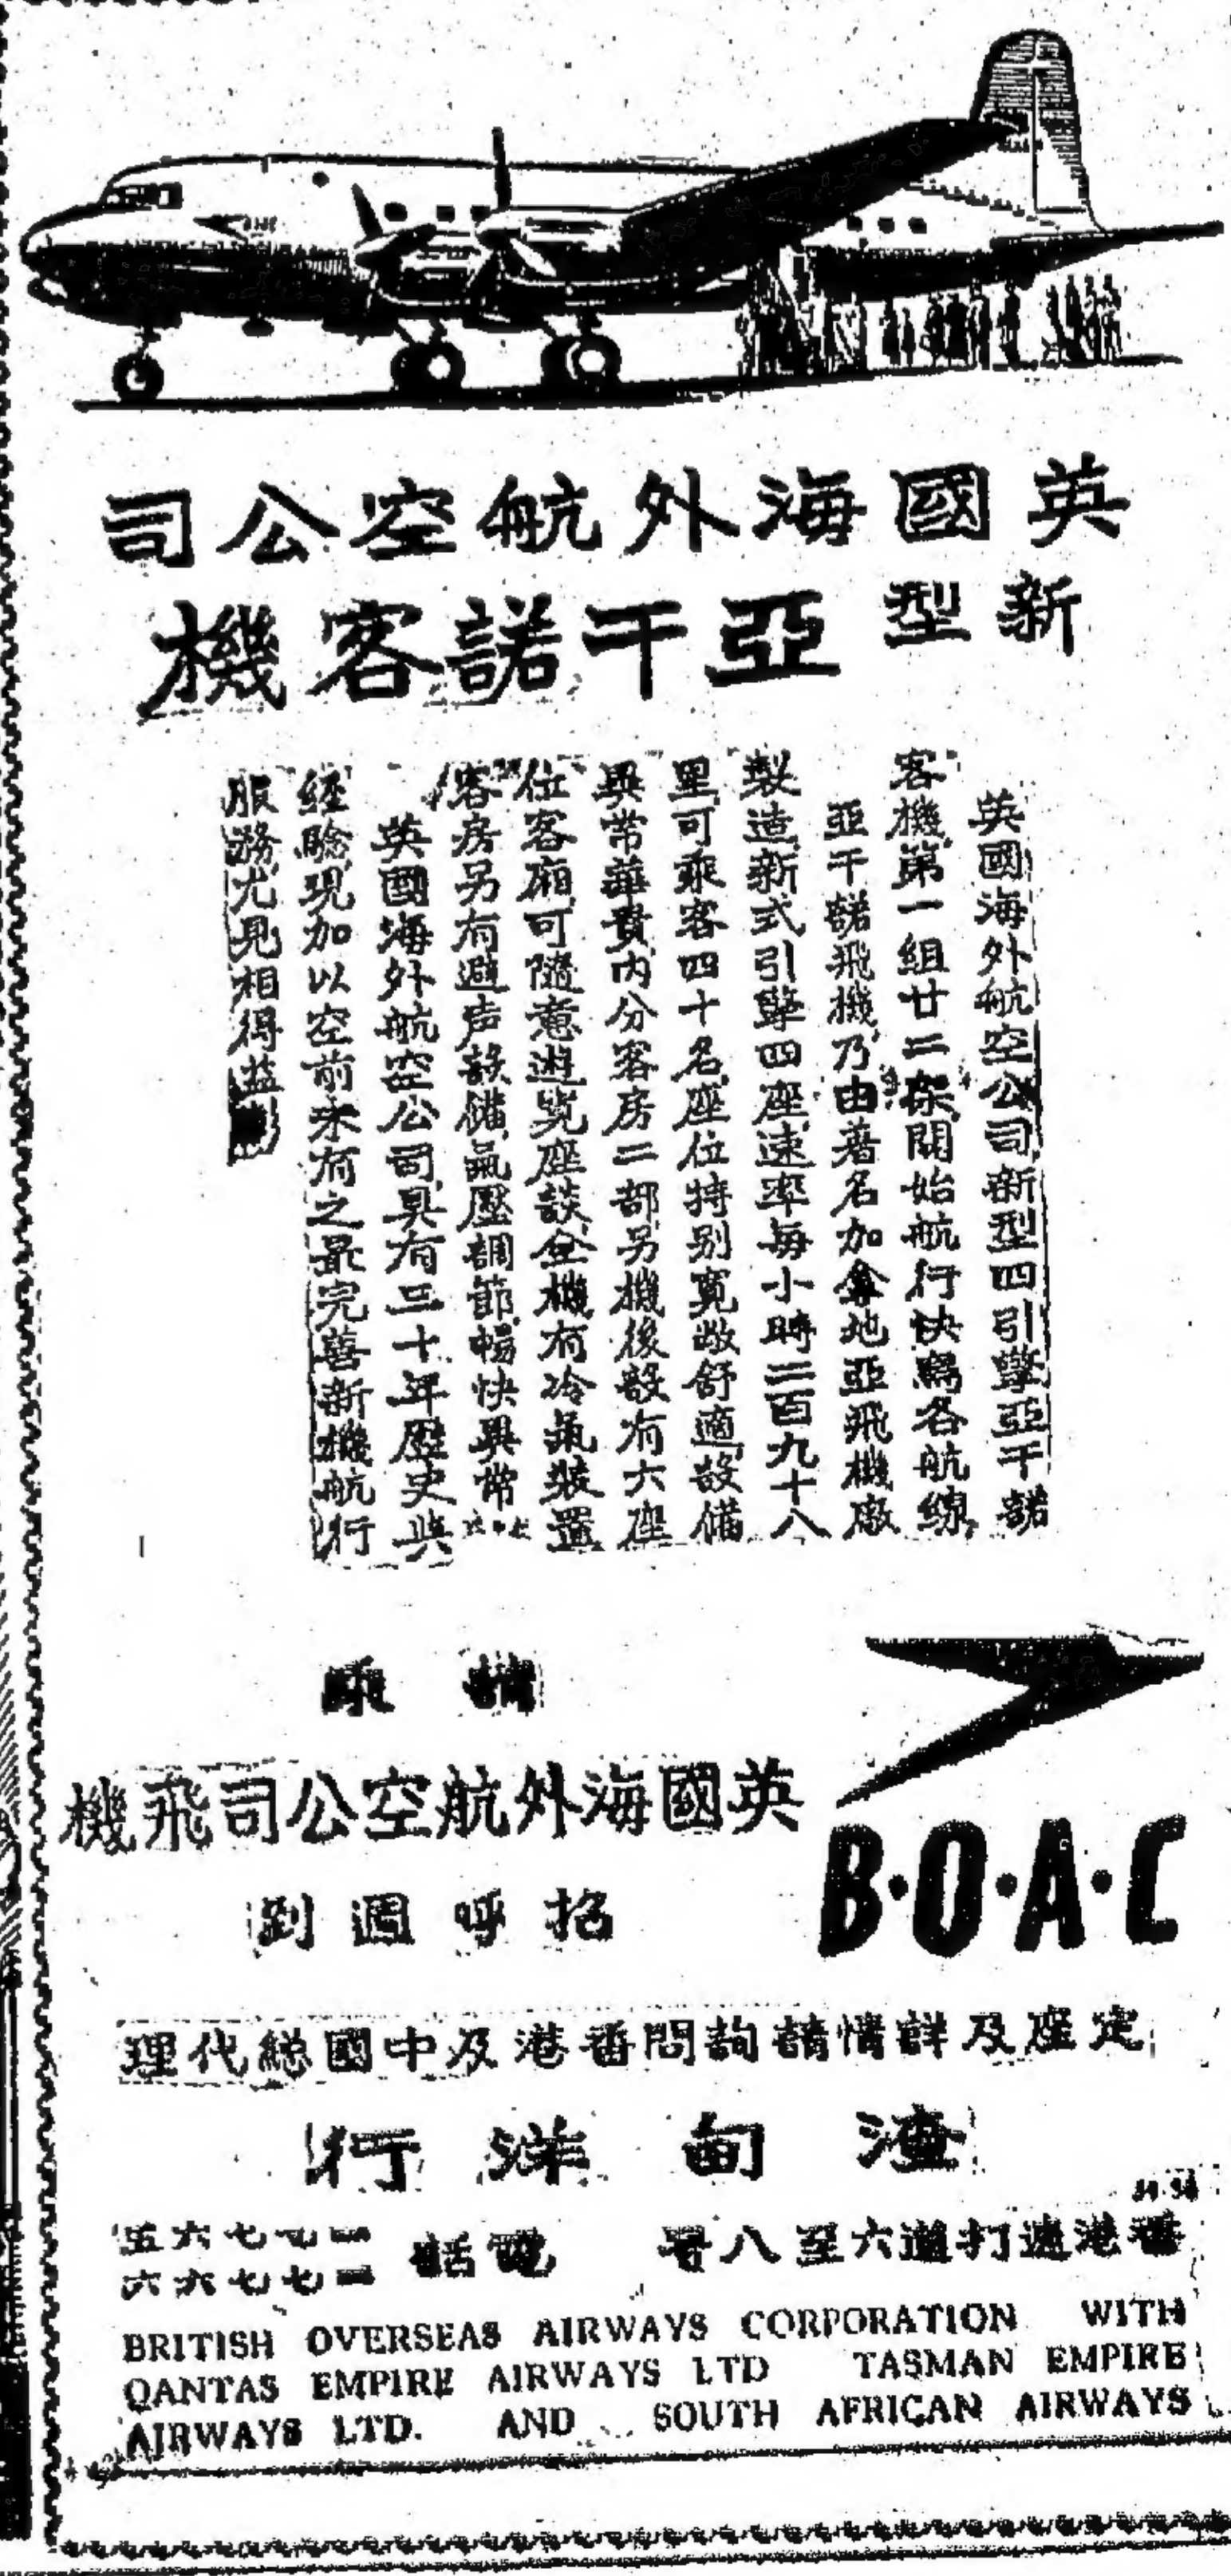 英國海外航空公司
新型
亞干諾客機
英國海外航空公司新型四引擎亞干諾
客機第一組廿二架開始航行快為各航線
亞干諾飛機乃由著名加拿地亞飛機廠
製造新式引擎四座速率每小時二百九十八
里可乘客四十名座位特別寬敞舒適設備
異常華貴內分客房二部另機後設有六座
位客廂可隨意遊覽座談全機有冷氣裝置
客房另有避声設備氣壓調節暢快異常
英國海外航空公司具有三十年歷史與
經驗現加以空前未有之最完善新機航行
服務尤見相得益彰
請乘
英國海外航空公司飛機
招呼週到
B·O·A·C
定座及詳情請詢問香港及中國總代理
渣甸洋行
香港遮打道六至八号 電話 二七七六五
二七七六六
BRITISH OVERSEAS AIRWAYS CORPORATION WITH
QANTAS EMPIRE AIRWAYS LTD TASMAN EMPIRE
AIRWAYS LTD. AND SOUTH AFRICAN AIRWAYS